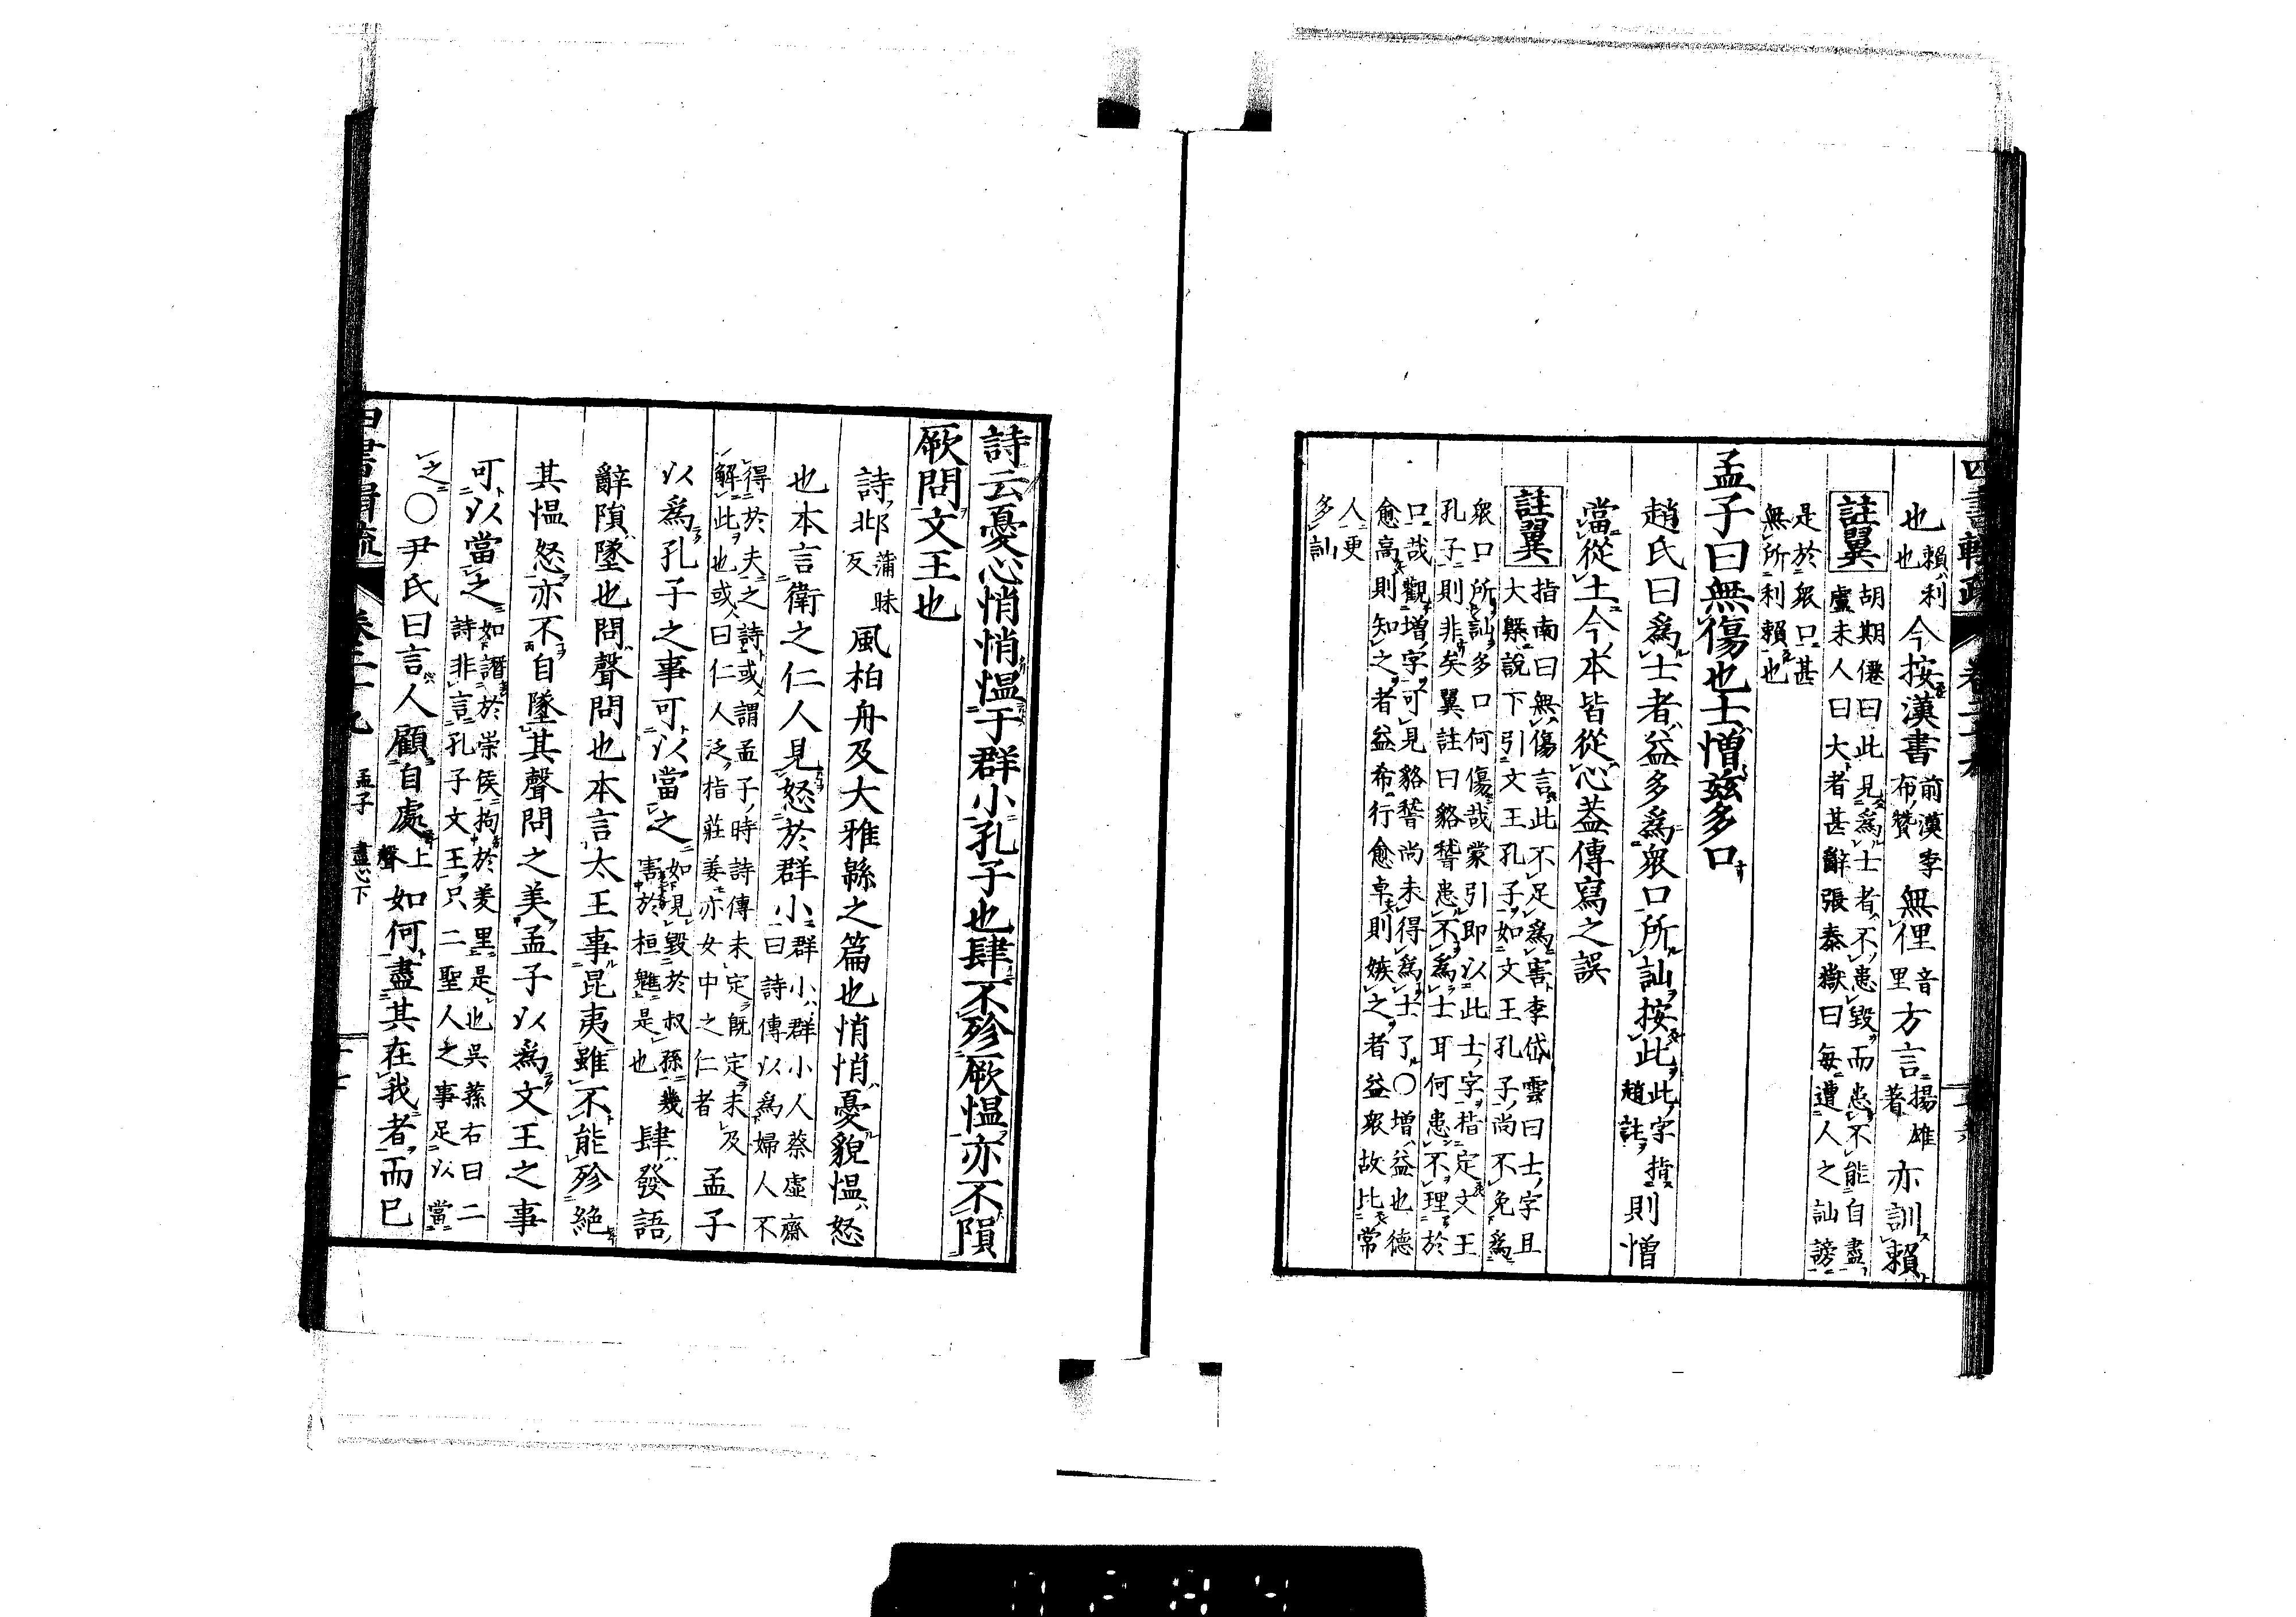 四書輯疏 卷二十九
也賴利也今按漢書前漢季布贊無俚音里方言揚雄著亦訓賴
註翼胡期僊曰此見爲士者不患毀而患不能自盡
盧未人曰大者甚辭張泰嶽曰每遭人之訕謗
是於衆口甚
無所利賴也
孟子曰無傷也士憎茲多口
趙氏曰爲士者益多爲衆口所訕按此此字指趙註則憎
當從土今本皆從心蓋傳寫之誤
註翼指南曰無傷言此不足爲害李岱雲曰士字且
大槩說下引文王孔子如文王孔子尚不免爲
衆口所訕多口何傷哉蒙引即以此士字指定文王
孔子則非矣翼註曰貉稽患不爲士耳何患不理於
口哉觀增字可見貉稽尚未得爲士了○增益也德
愈高則知之者益希行愈卓則嫉之者益衆故比常
人更
多訕
詩云憂心悄悄慍于群小孔子也肆不殄厥慍亦不隕
厥問文王也
詩邶蒲昧反風柏舟及大雅緜之篇也悄悄憂貌慍怒
也本言衛之仁人見怒於群小群小群小人蔡虛齋曰詩傳以爲婦人不
得於夫之詩或謂孟子時詩傳未定旣定未及
解此也或曰仁人泛指莊姜亦女中之仁者孟子
以爲孔子之事可以當之如見毀於叔孫幾害於桓魋是也肆發語
辭隕墜也問聲問也本言太王事昆夷雖不能殄絕
其慍怒亦不自墜其聲問之美孟子以爲文王之事
可以當之如譖於崇侯拘於羑里是也吳蓀右曰二
詩非言孔子文王只二聖人之事足以當
之○尹氏曰言人顧自處上聲如何盡其在我者而已
孟子 盡心下